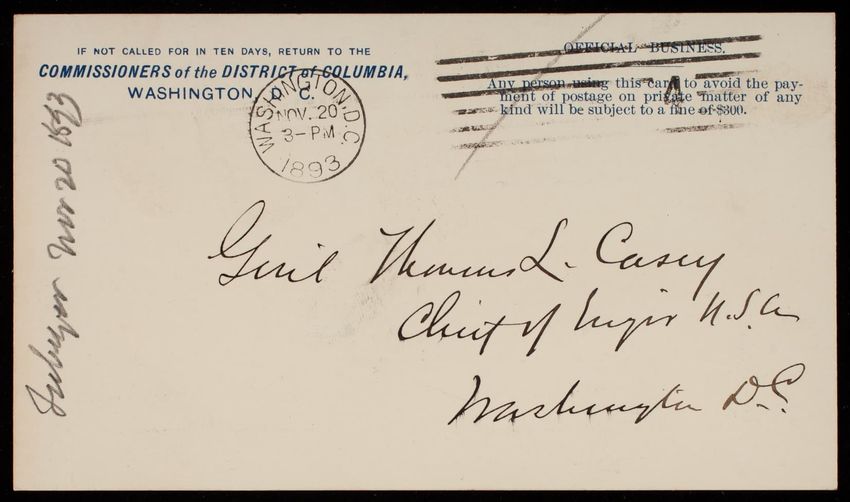 IF NOT CALLED FOR IN TEN DAYS, RETURN TO THE
COMMISSIONERS of the DISTRICT of COLUMBIA,
WASHINGTON, D. C.
WASHINGTON, D.C.
NOV. 20
3-PM
1893
OFFICIAL BUSINESS.
Any person using this card to avoid the pay-
ment of postage on private matter of any
kind will be subject to a fine of $300.
4
Genl Thomas L. Casey
Chief of Engrs U.S.A
Washington D.C.
Nov 20 1893